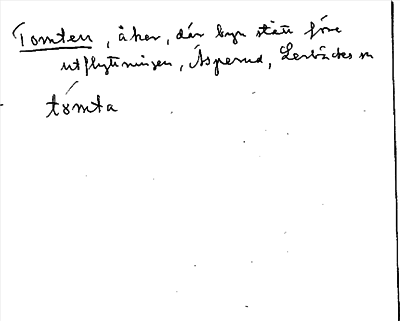 Tomten, åker, där byn stått före
utflyttningen, Åsperud, Lerbäckes sn
tomta